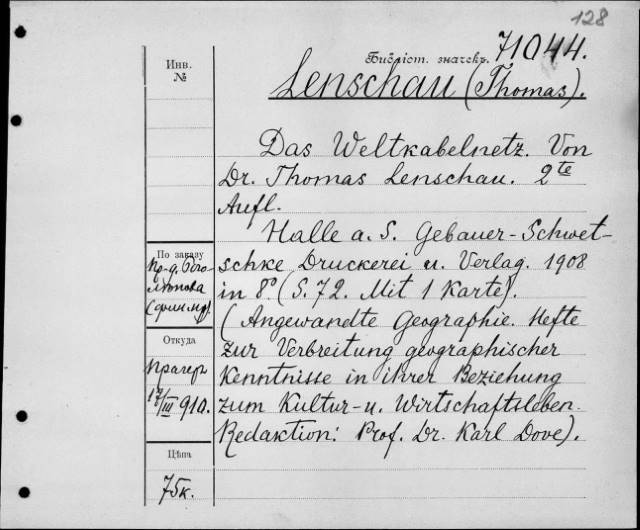 128
Библіот. значекъ. 71044.
Инв.
№
Lenschau (Thomas).
Das Weltkabelnetz. Von
Dr. Thomas Lenschau. 2te
Aufl.
Halle a. S. Gebauer-Schwet-
schke Druckerei u. Verlag. 1908
in 8º. (S. 72. Mit 1 Karte).
(Angewandte Geographie. Hefte
zur Verbreitung geographischer
Kenntnisse in ihrer Beziehung
zum Kultur- u. Wirtschaftsleben.
Redaktion: Prof. Dr. Karl Dove).
По заказу
Пр-д. Бого-
лѣпова
Откуда
Прагеръ
17/III 910.
Цѣна
75к.